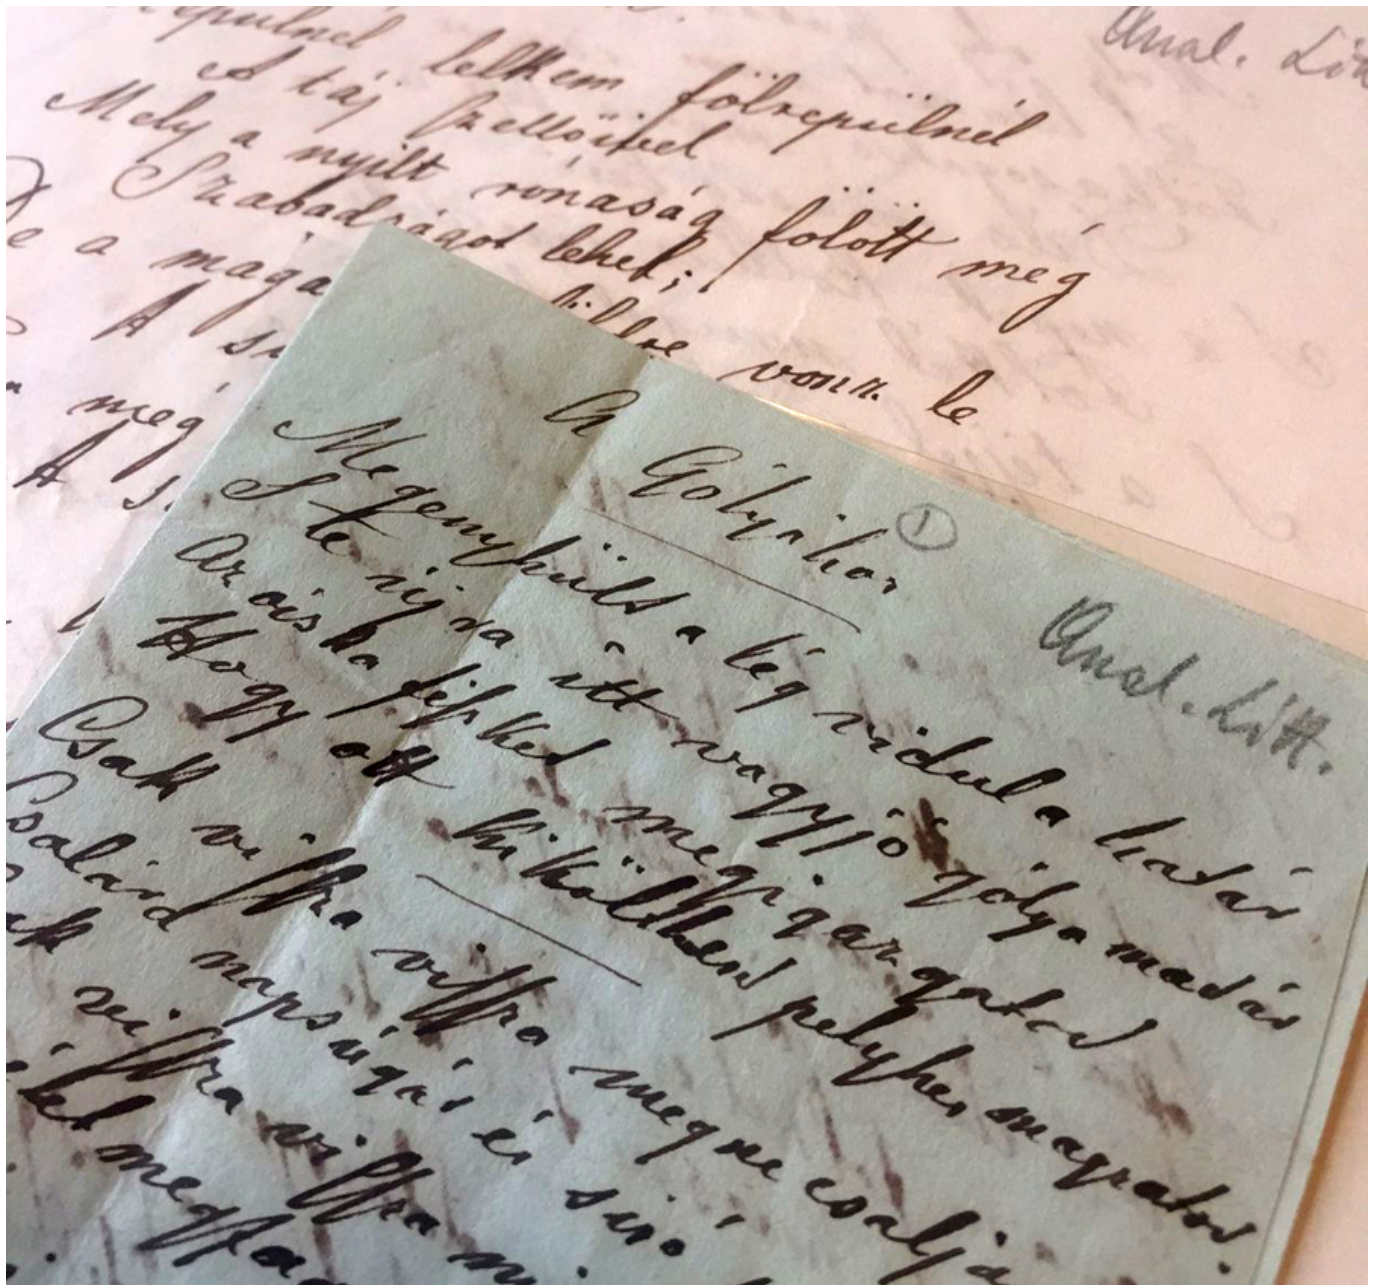 lelkem fölrepülnél
A táj szellőivel
Mely a nyilt rónaság fölött még
Szabadságot lehel;
e a maga
vonz le
A su
még
A s
Anal. Litt
A Gólyához
1
Anal. Litt.
Megenyhült a lég vidul a határ
S te újra itt vagy jó gólya madár
Az ócska fészket megigazgatod
Hogy ott kikölthesd pelyhes magzatod.
Csak vissza vissza meg ne csalja
Csalárd napsúgár és siró
ak vissza vissza ni
élet megfa